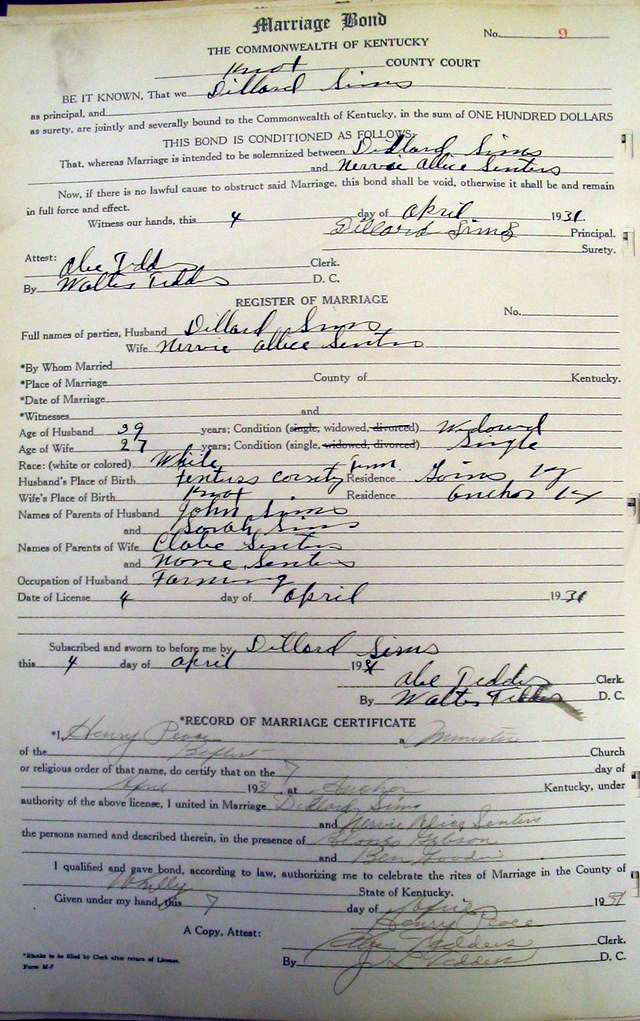 Marriage Bond
No. 9
THE COMMONWEALTH OF KENTUCKY
Knox COUNTY COURT
BE IT KNOWN, That we Dillard Sims
as principal, and
as surety, are jointly and severally bound to the Commonwealth of Kentucky, in the sum of ONE HUNDRED DOLLARS
THIS BOND IS CONDITIONED AS FOLLOWS:
That, whereas Marriage is intended to be solemnized between Dillard Sims
and Nervie Allice Senters
Now, if there is no lawful cause to obstruct said Marriage, this bond shall be void, otherwise it shall be and remain
in full force and effect.
Witness our hands, this 4 day of April 1931
Dillard Sims Principal.
Surety.
Attest: Abe Tedders Clerk.
By Walter Tedders D. C.
REGISTER OF MARRIAGE
No.
Full names of parties, Husband Dillard Sims
Wife Nervie Allice Senters
*By Whom Married
*Place of Marriage County of Kentucky.
*Date of Marriage
*Witnesses and
Age of Husband 39 years; Condition (single, widowed, divorced) Widowed
Age of Wife 27 years; Condition (single, widowed, divorced) Single
Race: (white or colored) White
Husband's Place of Birth County Tenn. Residence Goins Ky
Wife's Place of Birth Knox Residence Anchor Ky
Names of Parents of Husband John Sims
and Sarah Sims
Names of Parents of Wife Senters
and Senters
Occupation of Husband Farming
Date of License 4 day of April 1931
Subscribed and sworn to before me by Dillard Sims
this 4 day of April 1931
Abe Tedders Clerk.
By Walter Tedders D. C.
*RECORD OF MARRIAGE CERTIFICATE
*I, Henry a Minister
of the Baptist Church
or religious order of that name, do certify that on the 7 day of
April 1931 at Anchor Kentucky, under
authority of the above license, I united in Marriage Dillard Sims
and Nervie Alice Senters
the persons named and described therein, in the presence of Gibson
and Ben
I qualified and gave bond, according to law, authorizing me to celebrate the rites of Marriage in the County of
Whitly State of Kentucky.
Given under my hand, this 7 day of April 1931
Henry
A Copy, Attest: Abe Tedders Clerk.
By J. L. Tedders D. C.
*Blanks to be filled by Clerk after return of License.
Form M-7